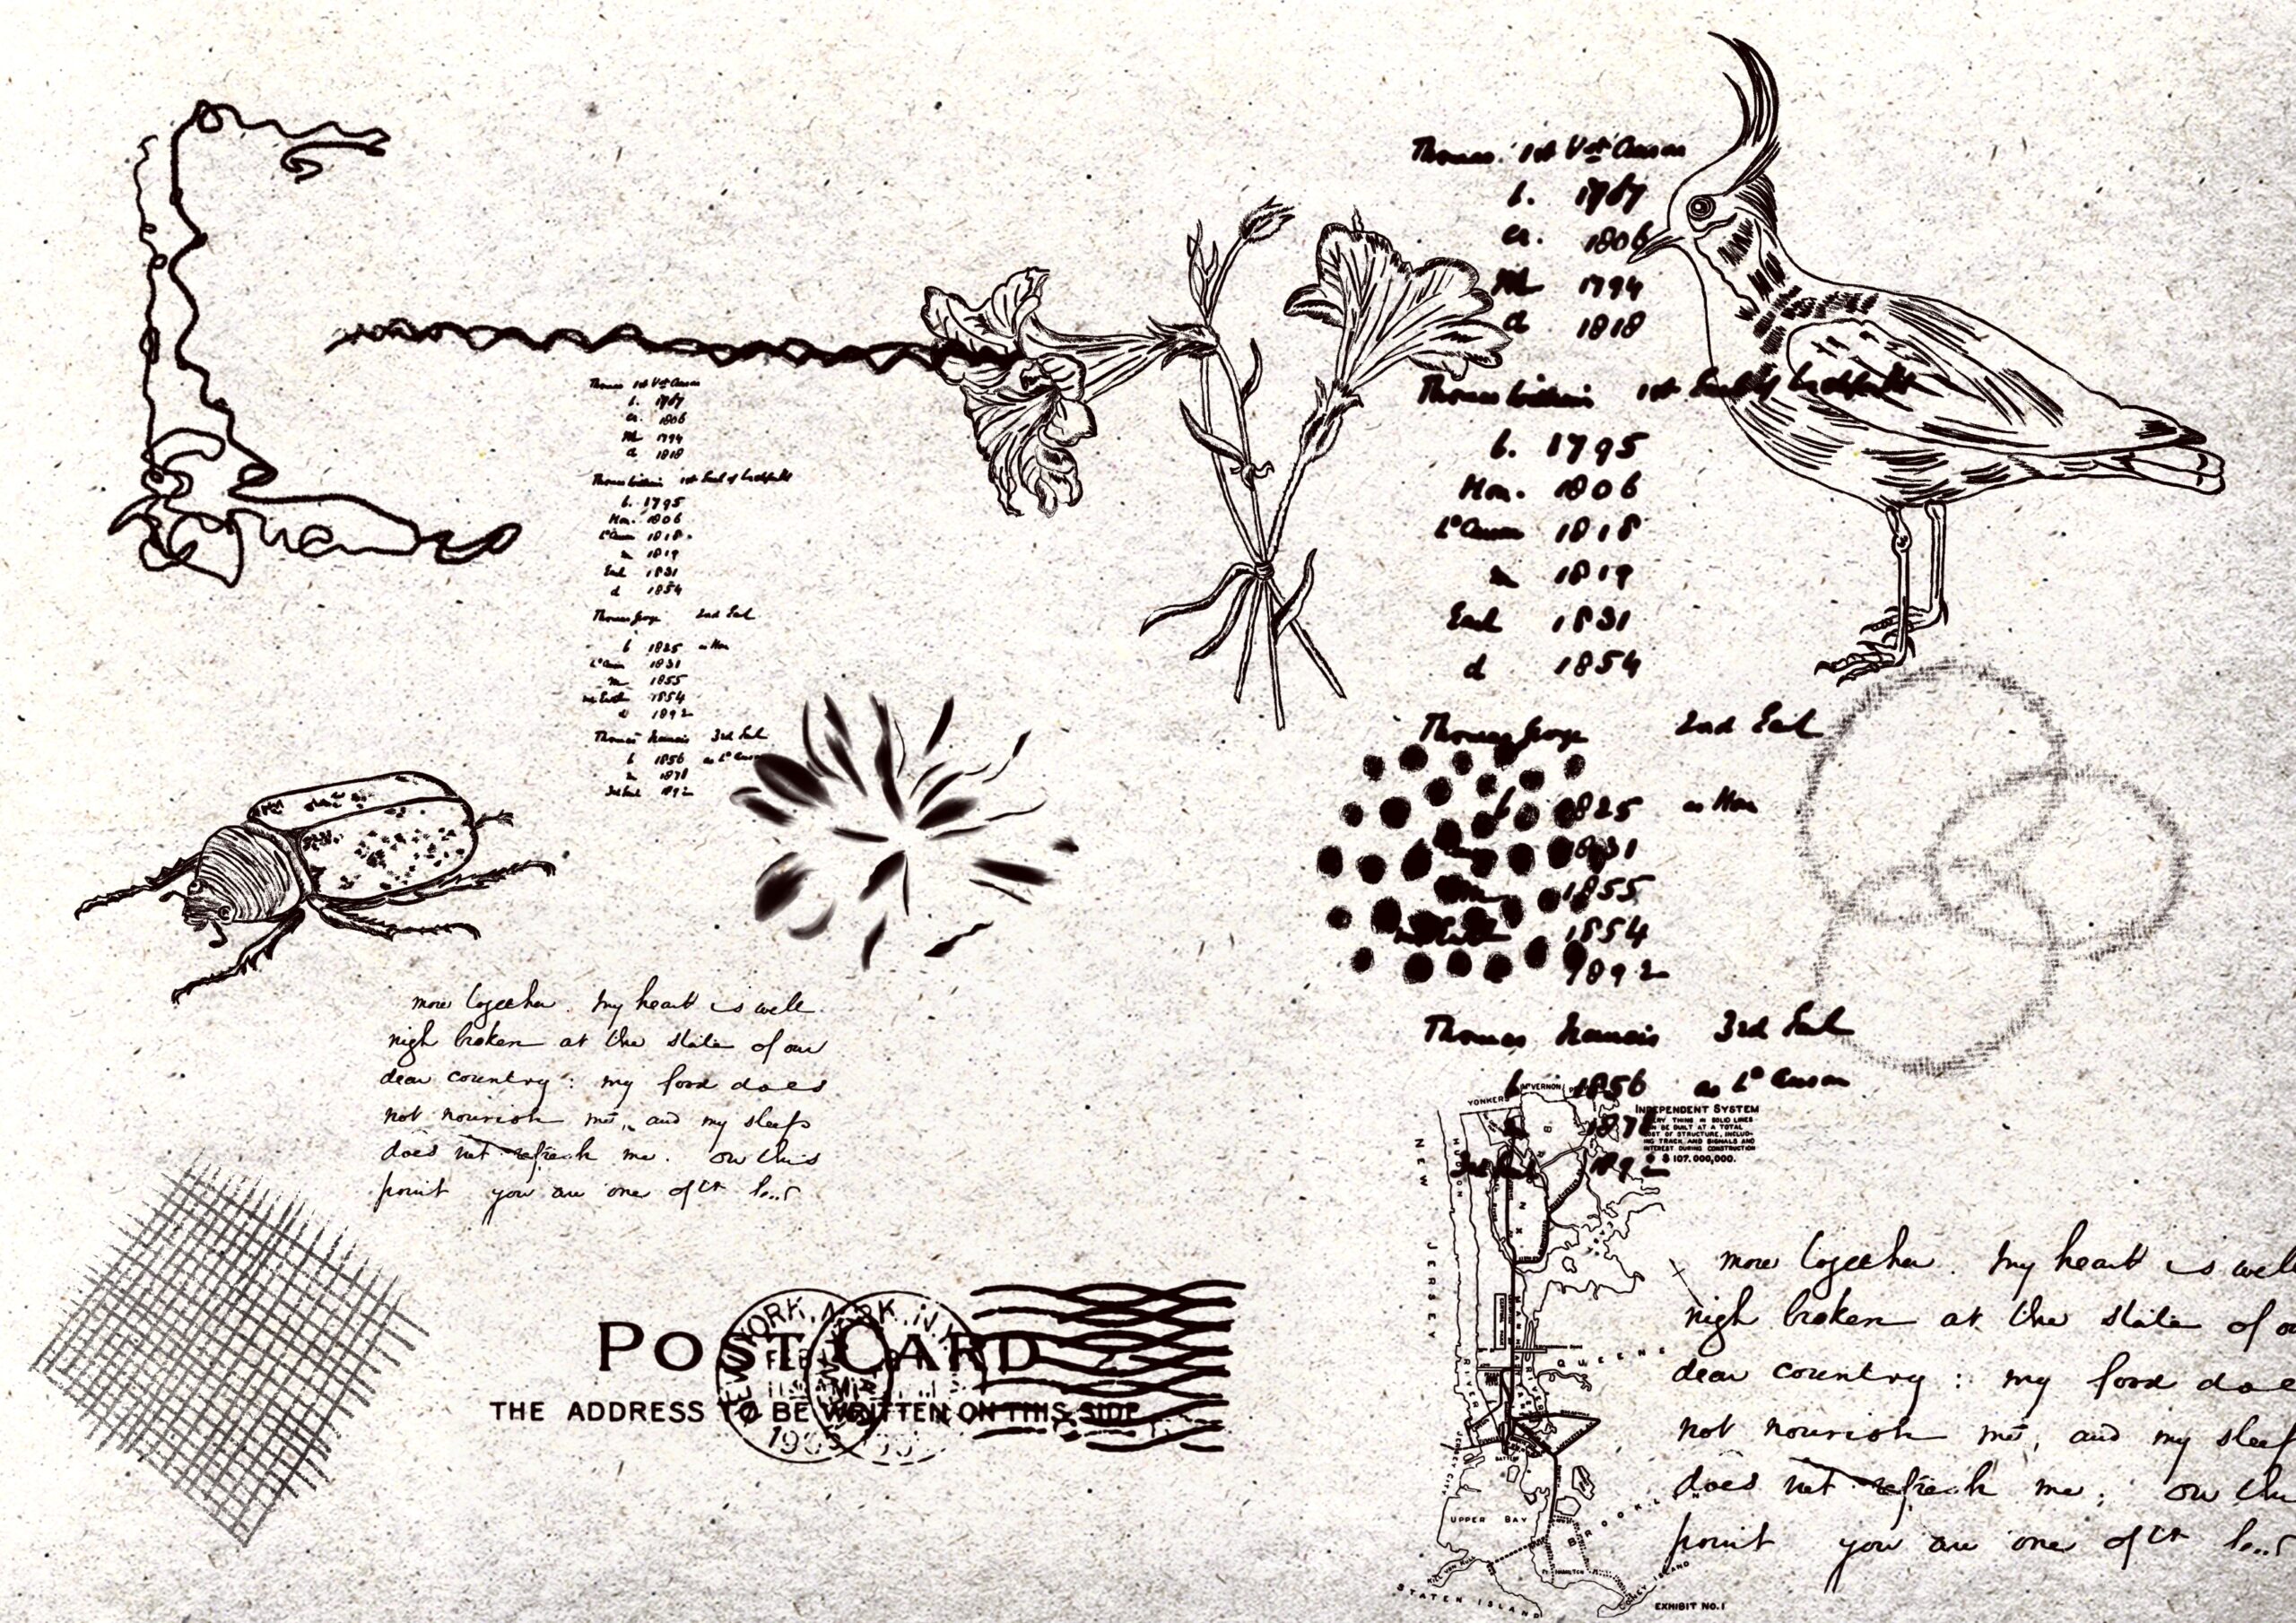 Thomas 1st Vct Anson
b. 1767
cr. 1806
M 1794
d 1818
Thomas William 1st Earl of Lichfield
b. 1795
Hon. 1806
Ld Anson 1818
m 1819
Earl 1831
d 1854
Thomas George 2nd Earl
b 1825 as Hon
1831
m 1855
1854
1892
Thomas Francis 3rd Earl
b 1856 as Ld Anson
m 1878
3rd Earl 1892
Thomas 1st Vct Anson
b. 1767
cr. 1806
M 1794
d 1818
Thomas William 1st Earl of Lichfield
b. 1795
Hon. 1806
Ld Anson 1818.
m 1819
Earl 1831
d 1854
Thomas George 2nd Earl
b 1825 as Hon
Ld Anson 1831
m 1855
1854
d 1892
Thomas Francis 3rd Earl
b 1856 as Ld Anson
m 1878
3rd Earl 1892
more together. My heart is well
nigh broken at the state of our
dear country: my food does
not nourish me, and my sleep
does not refresh me. On this
point you are one of
POST CARD
THE ADDRESS TO BE WRITTEN ON THIS SIDE
NEW YORK, N.Y.
FEB
190
YONKERS
MT VERNON
INDEPENDENT SYSTEM
EVERY THING IN SOLID LINES
CAN BE BUILT AT A TOTAL
COST OF STRUCTURE, INCLUD-
ING TRACK AND SIGNALS AND
INTEREST DURING CONSTRUCTION
$107,000,000.
NEW JERSEY
HUDSON RIVER
BRONX
MANHATTAN
QUEENS
JERSEY CITY
BROOKLYN
UPPER BAY
CONEY ISLAND
STATEN ISLAND
EXHIBIT NO. 1
more together. My heart is well
nigh broken at the state of
dear country: my food
not nourish me, and my sleep
does not refresh me. On
point you are one of